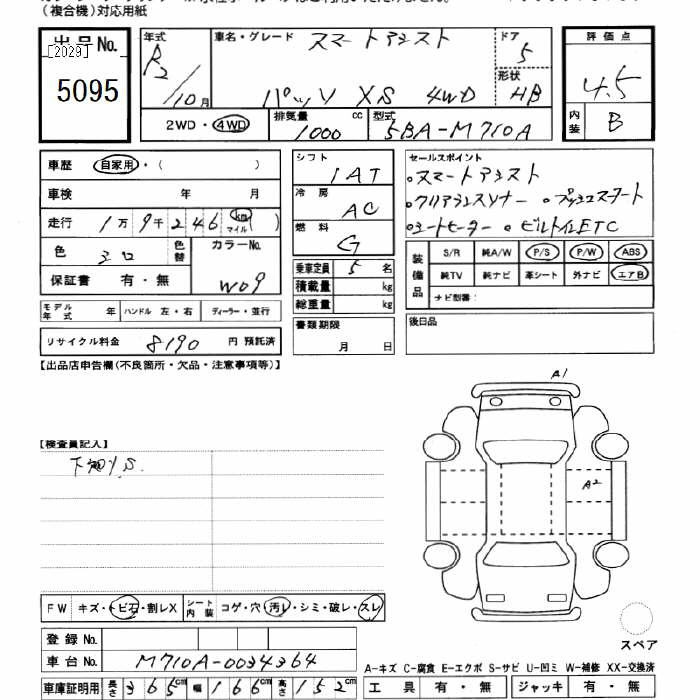 （複合機）対応用紙
出品No.
[2029]
5095
年式 R2/10月
車名・グレード スマートアシスト
ドア 5
パッソ XS 4WD
形状 HB
評価点 4.5
内装 B
2WD・4WD
排気量 1000 cc
型式 5BA-M710A
車歴 自家用・（ ）
車検 年 月
走行 1万9千246 km マイル ( )
色 シロ 色替 カラーNo. W09
保証書 有・無
モデル年式 年 ハンドル 左・右 ディーラー・並行
リサイクル料金 8190 円 預託済
シフト IAT
冷房 AC
燃料 G
乗車定員 5 名
積載量 kg
総重量 kg
書類期限
月 日
セールスポイント
・スマートアシスト
・クリアランスソナー ・プッシュスタート
・シートヒーター ・ビルトインETC
装備品 S/R 純A/W P/S P/W ABS
純TV 純ナビ 革シート 外ナビ エアB
ナビ型番：
後日品
【出品店申告欄(不良箇所・欠品・注意事項等)】
【検査員記入】
A1
A2
スペア
FW キズ・トビ石・割レX シート内装 コゲ・穴・汚レ・シミ・破レ・スレ
登録 No.
車台 No. M710A-0034364
車庫証明用 長さ 365cm 幅 166cm 高さ 152cm
A−キズ C−腐食 E−エクボ S−サビ U−凹ミ W−補修 XX−交換済
工具 有・無 ジャッキ 有・無